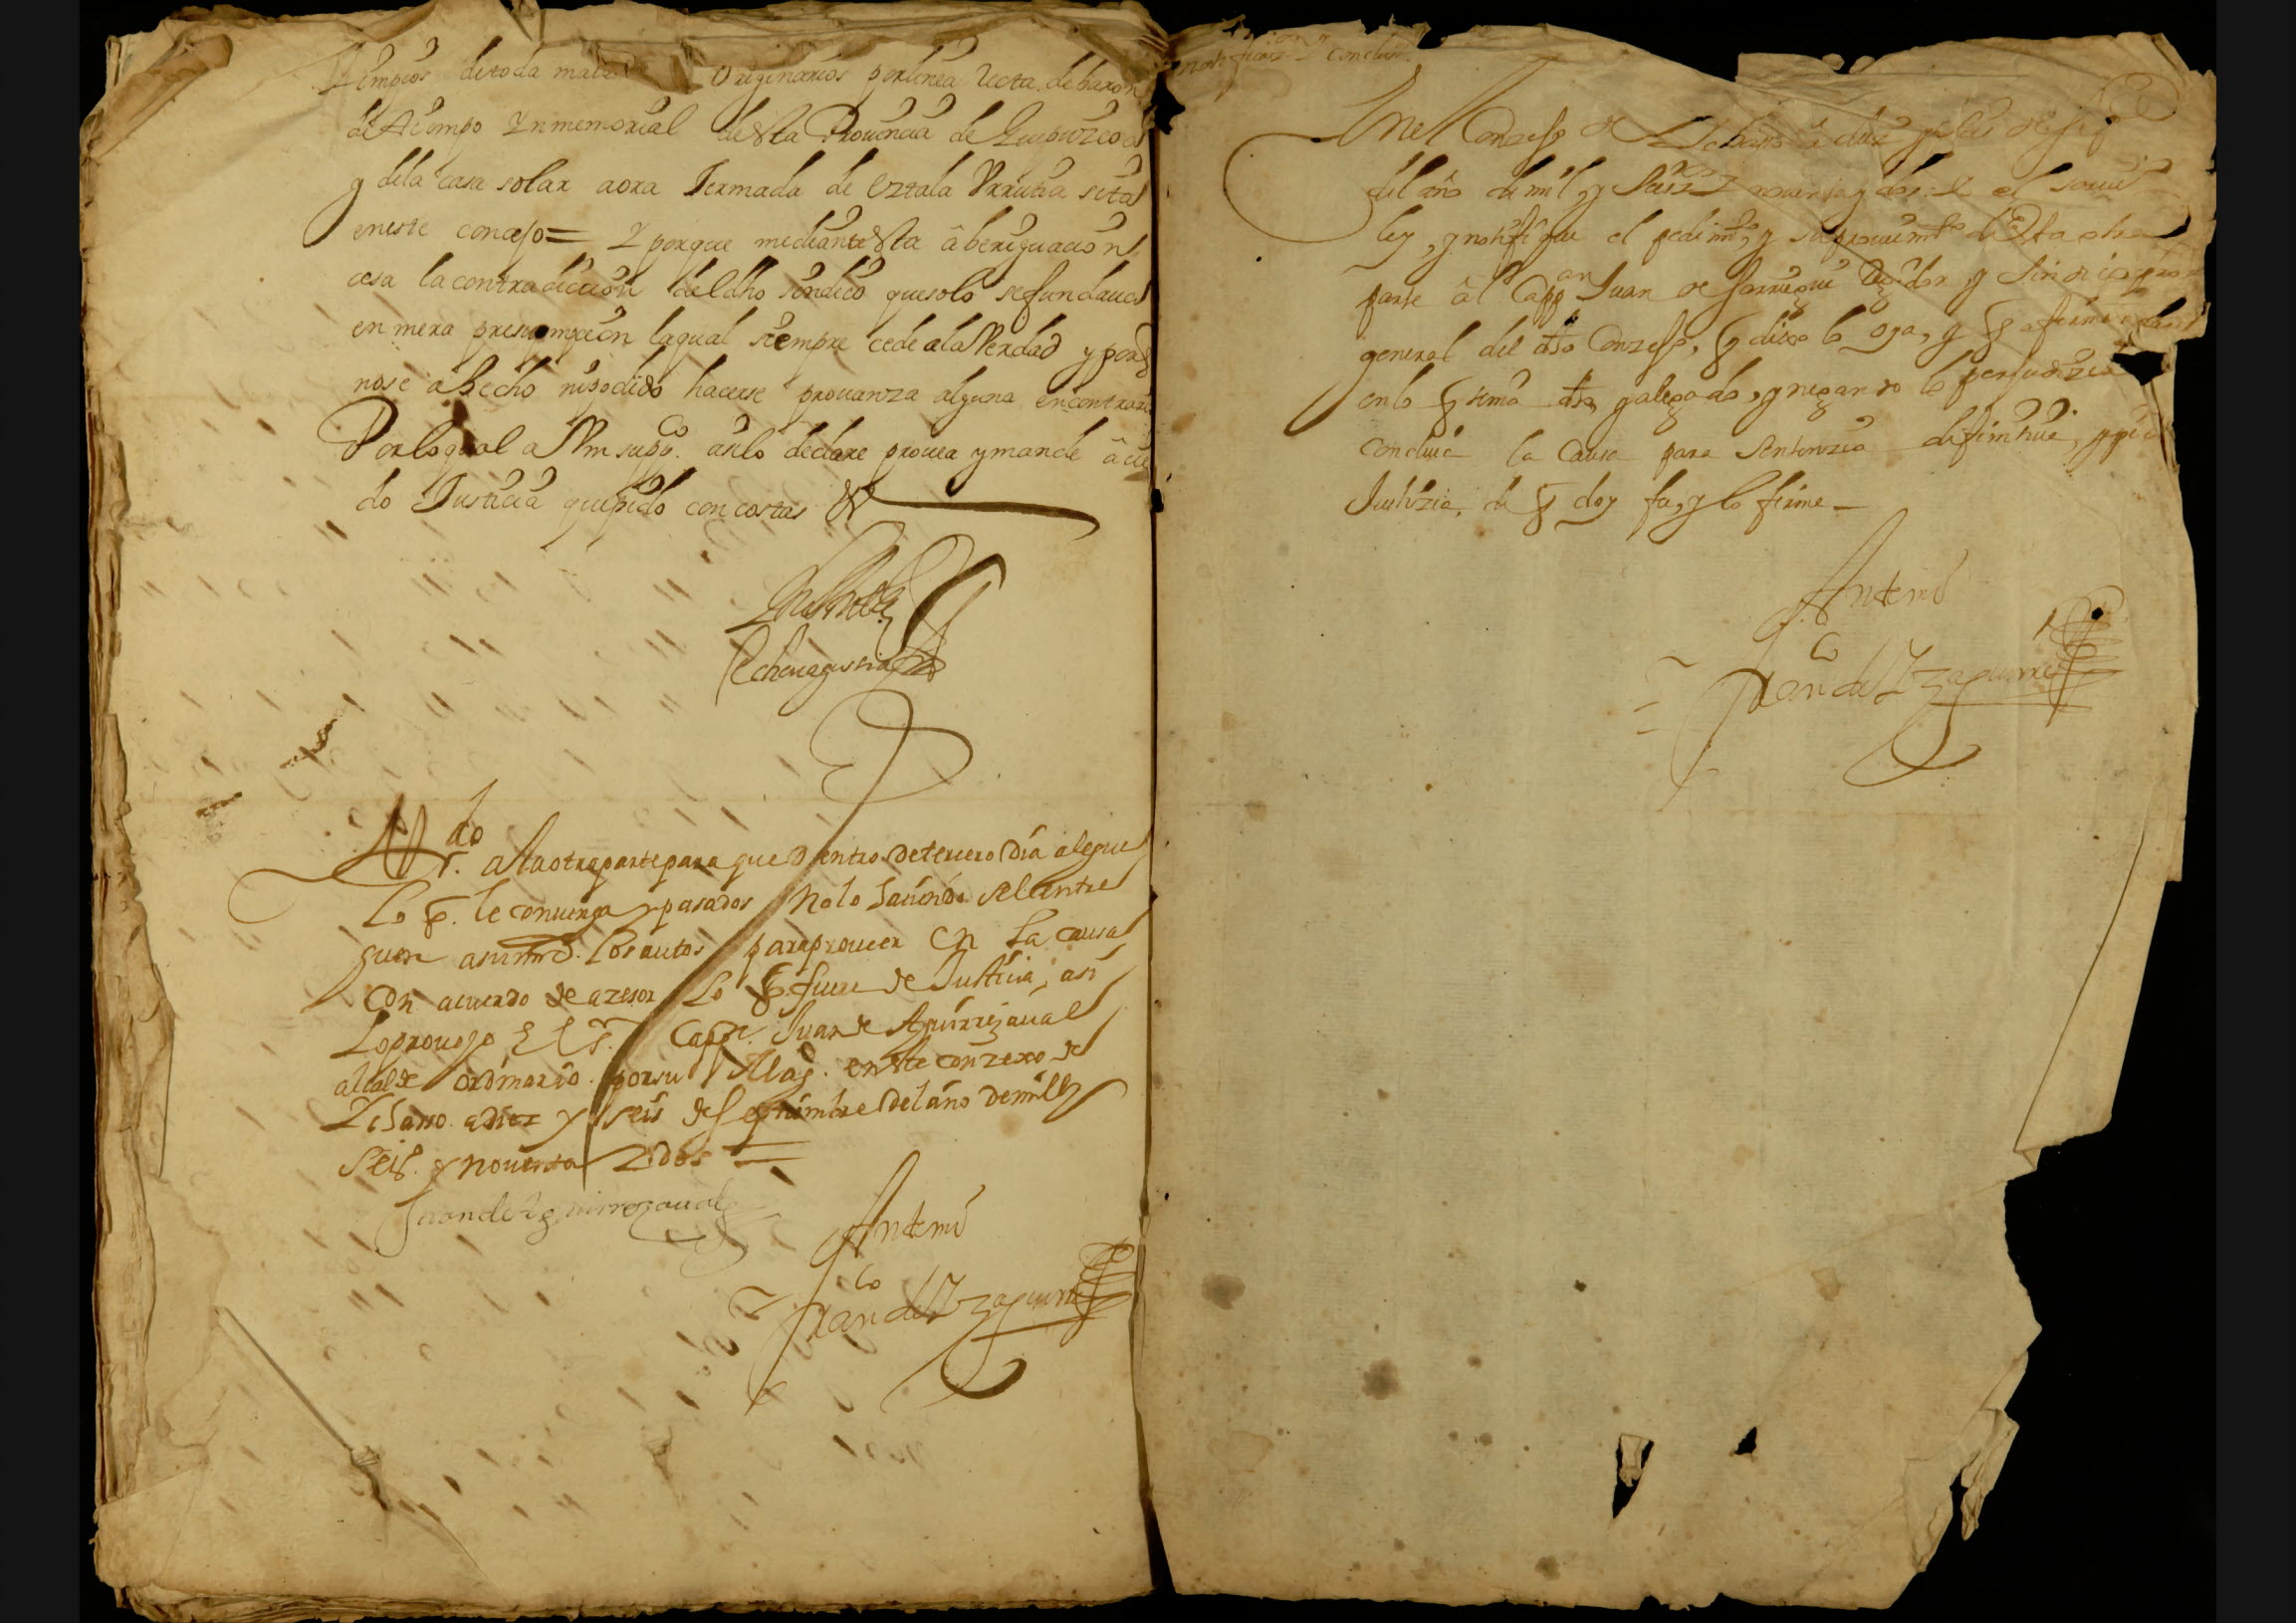 Limpios de toda mala Originarios por linea Recta de baron
de tiempo Ynmemorial desta Prouincia de Guipuzcoa
y dela casa solar aora Termada de Oztala Vrrutia sita
eneste concejo = Y porque mediante esta âberiguacion
cesa la contradicion del dho sindico que solo se fundaua
en mera presumpcion la qual siempre cede ala Verdad y por q
nose a hecho nipodido hacerse prouanza alguna encontrario
Por lo qual a Vm suppco. asilo declare prouea y mande
do Justicia que pido con costas &
Echeuagusia
Trdo. ala otra parte para que Dentro de tercero Dia alegue
Lo q. le conuenga y pasados No lo hauiendo se le entre
guen asumrd. los autos para proueer En La causa
Con acuerdo de azesor Lo q. fuere de Justicia, asi
Loproueyo El Sr. Cappn. Juan de Aguirrezaual
alcalde ordinario por su Mag. eneste conzexo de
Zeharro. adiez y seis de septiembre del año de mill
Seisº. y nouenta Y dos =
Juan de Aguirrezaual
Ante mi
Franco de Yzaguirre
Notificazion Conclusn.
Enel Conzejo de Zeharro â diez y seis de
del año de mil, y seisz. y nouenta y dos: Yo el
ley, y notifique el pedimto, y su proueimto de Esta otra
parte âl Cappan Juan de Jarruegui Regidor y Sindico pror
general del dho Conzejo, q dixo lo oya, y q afirmandose
enlo q tiene dho, y alegado, y negando lo perjudizial
concluia la Causa para Sentenzia difinitiua, y
Justizia, de q doy fee, y lo firme —
Ante mi
Franco de Yzaguirre